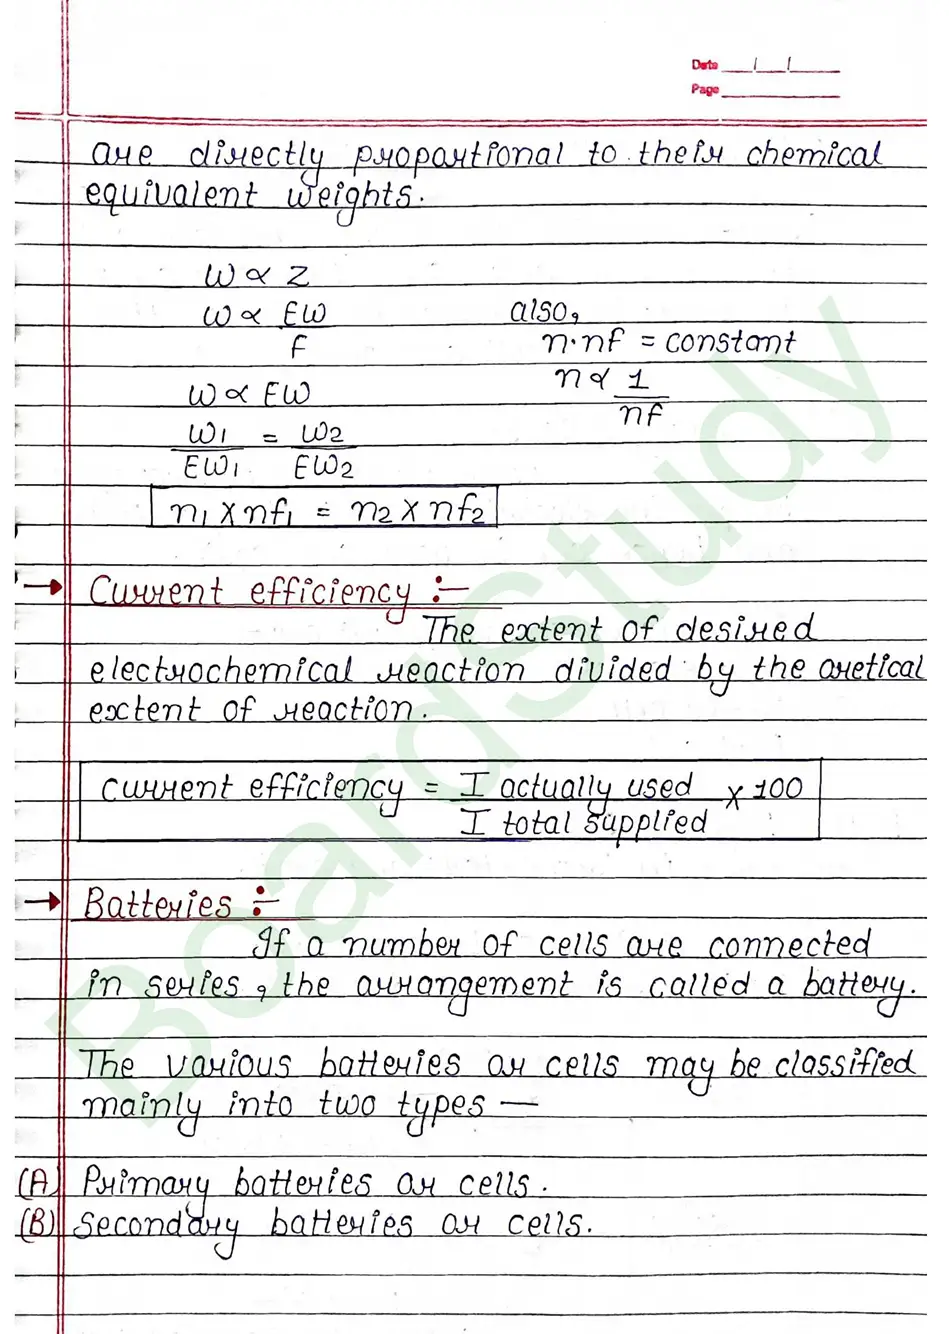 Date / /
Page
are directly proportional to their chemical
equivalent weights.
W ∝ Z
W ∝ EW/F
also,
n·nf = constant
W ∝ EW
n ∝ 1/nf
W1/EW1 = W2/EW2
n1 × nf1 = n2 × nf2
→ Current efficiency :-
The extent of desired
electrochemical reaction divided by the oretical
extent of reaction.
Current efficiency = I actually used / I total supplied × 100
→ Batteries :-
If a number of cells are connected
in series, the arrangement is called a battery.
The various batteries or cells may be classified
mainly into two types —
(A) Primary batteries or cells.
(B) Secondary batteries or cells.
BoardStudy